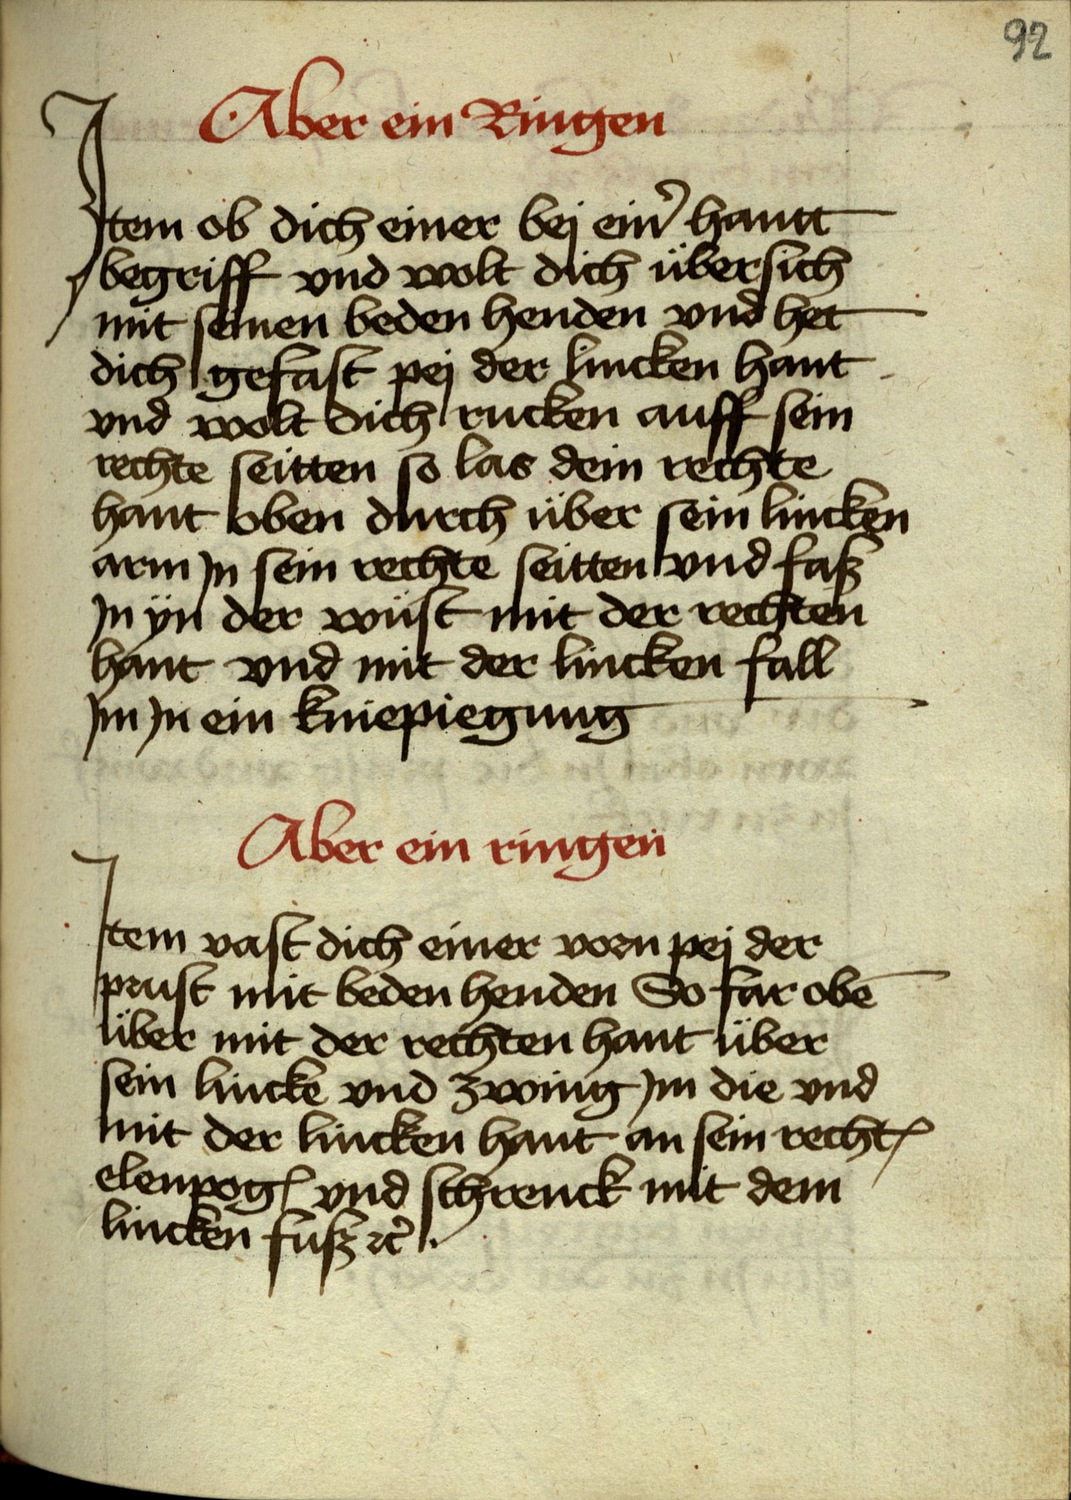 92
Aber ein Ringen
Item ob dich einer bej ein̉ hantt
begriff vnd wolt dich übersich
mit seinen beden henden vnd het
dich gefast pej der lincken hant
vnd wolt dich rucken auff sein
rechte seitten so las dein rechte
hant oben durch über sein lincken
arm Jn sein rechte seitten vnd faß
Jn ÿn der wüst mit der rechten
hant vnd mit der lincken fall
Jm Jn ein kniepiegung
Aber ein ringen
Item vast dich einer vorn pej der
prust mit beden henden So far obē
über mit der rechten hant über
sein lincke vnd zwing Jm die vnd
mit der lincken hant an sein rechtꝭ
elenpogꝭ vnd schrenck mit dem
lincken fuß ꝛc̉ ·